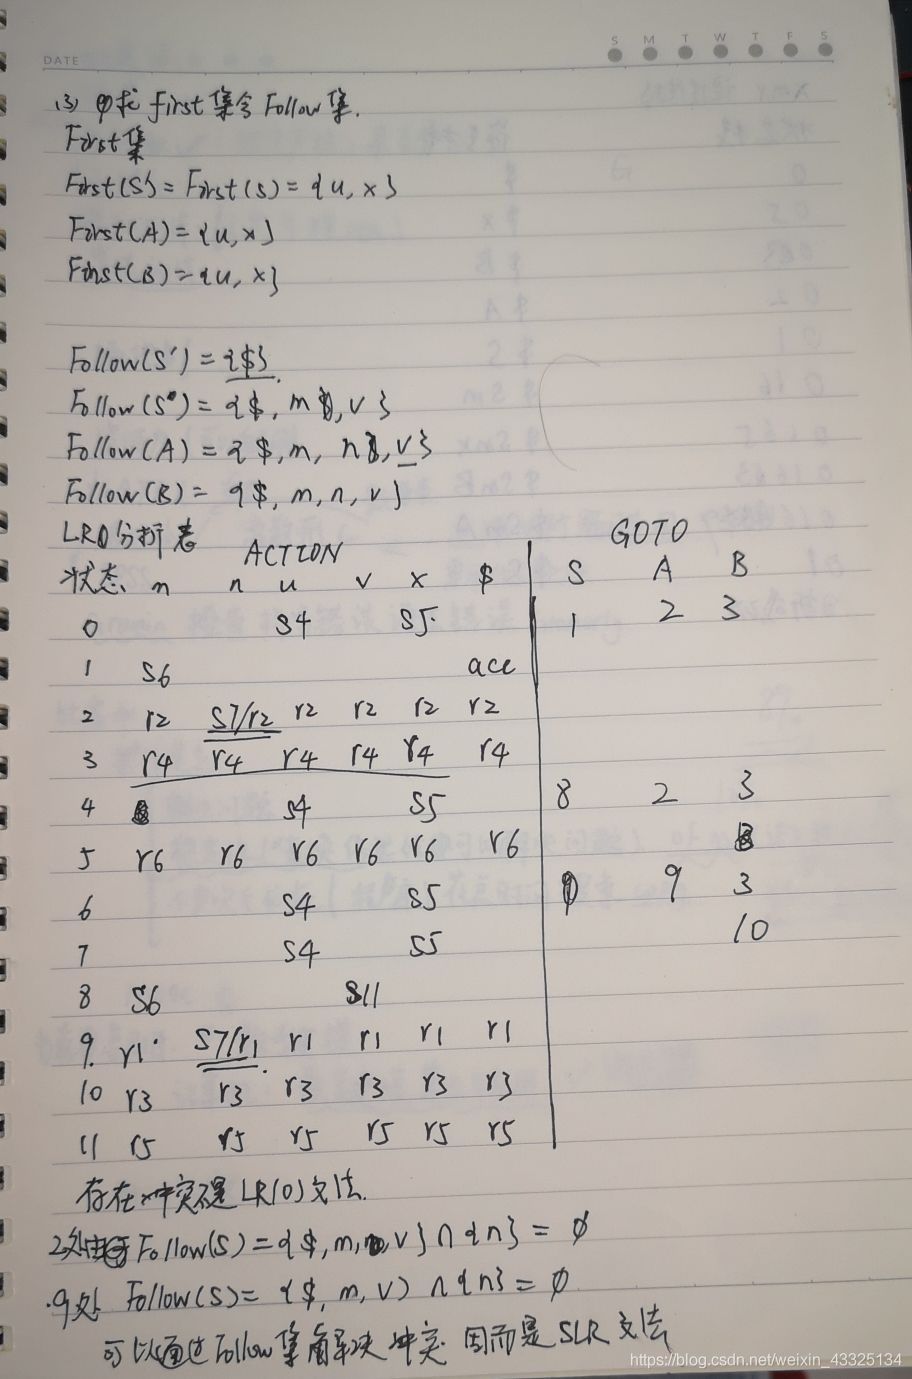 DATE
S M T W T F S
(3) ①求 First集合 Follow集.
First集
First(S') = First(S) = {u, x}
First(A) = {u, x}
First(B) = {u, x}
Follow(S') = {$}.
Follow(S) = {$, m, v}
Follow(A) = {$, m, n, v}
Follow(B) = {$, m, n, v}
LR0分析表 ACTION GOTO
状态 m n u v x $ S A B
0 S4 S5 1 2 3
1 S6 acc
2 r2 S7/r2 r2 r2 r2 r2
3 r4 r4 r4 r4 r4 r4
4 S4 S5 8 2 3
5 r6 r6 r6 r6 r6 r6
6 S4 S5 9 3
7 S4 S5 10
8 S6 S11
9. r1 S7/r1 r1 r1 r1 r1
10 r3 r3 r3 r3 r3 r3
11 r5 r5 r5 r5 r5 r5
存在冲突不是 LR(0)文法.
2处由于 Follow(S) = {$, m, v} ∩ {n} = ∅
9处 Follow(S) = {$, m, v) ∩ {n} = ∅
可以通过Follow集解决冲突 因而是 SLR 文法
https://blog.csdn.net/weixin_43325134